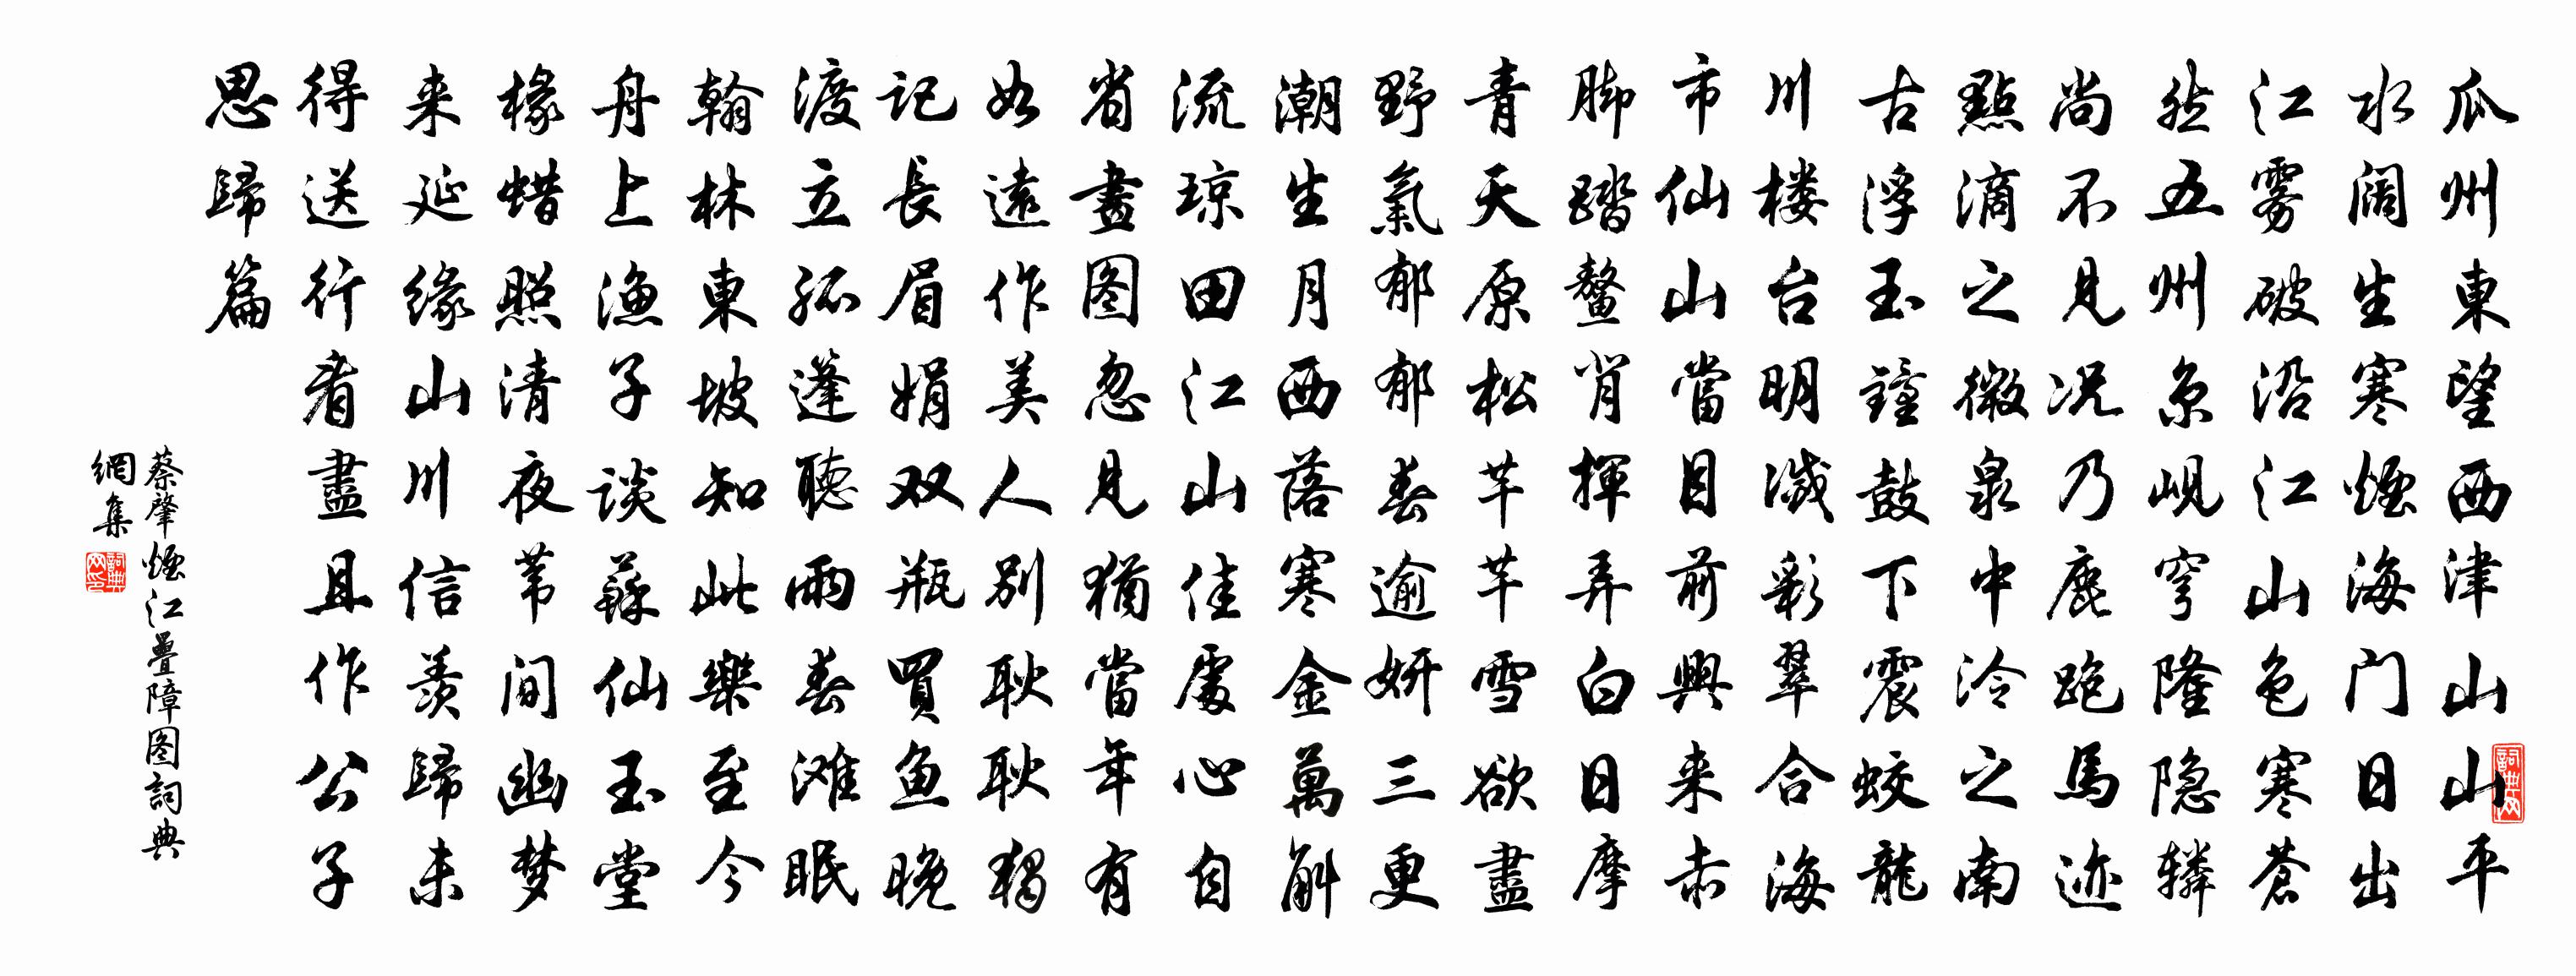 瓜州東望西津山山平
水阔生寒煙海门日出
江雾破沿江山色寒蒼
然五州京岘穹隆隐辚
尚不見况乃鹿跑馬迹
點滴之微泉中泠之南
古浮玉鐘鼓下震蛟龍
川楼台明滅彩翠合海
市仙山當目前興来赤
脚踏鳌背揮弄白日摩
青天原松芊芊雪欲盡
野氣郁郁春逾妍三更
潮生月西落寒金萬斛
流琼田江山佳處心自
省畫图忽見猶當年有
如遠作美人别耿耿獨
記長眉娟双瓶買鱼晚
渡立孤蓬聽雨春滩眠
翰林東坡知此樂至今
舟上渔子談蘇仙玉堂
椽蜡照清夜苇間幽梦
来延缘山川信羡歸未
得送行看盡且作公子
思歸篇
蔡肇煙江疊障图詞典
網集
詞典网印
詞典网